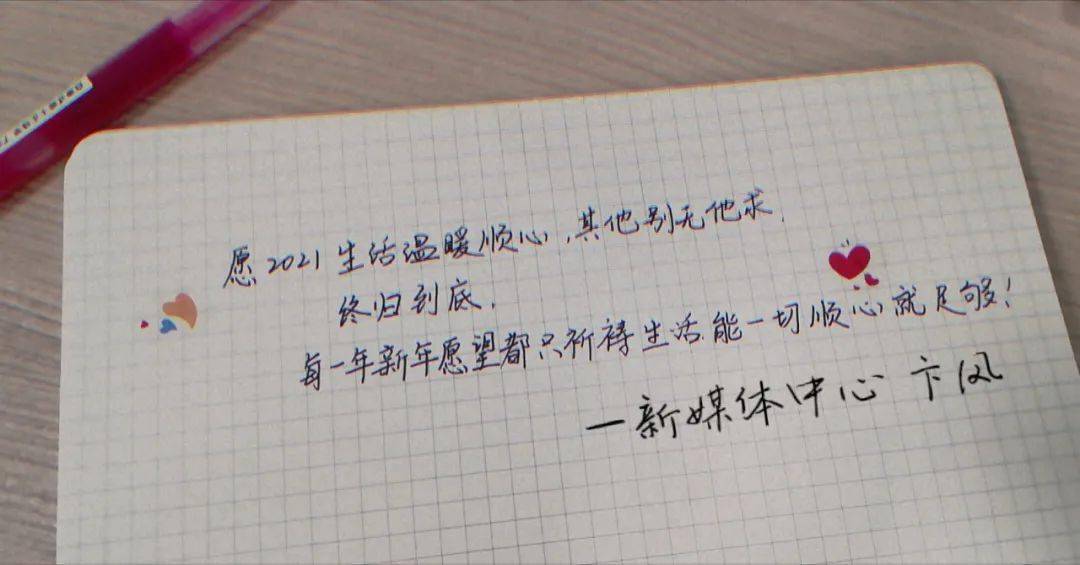 愿2021生活温暖顺心,其他别无他求.
终归到底,
每一年新年愿望都只祈祷生活能一切顺心就足够!
—新媒体中心 卞风